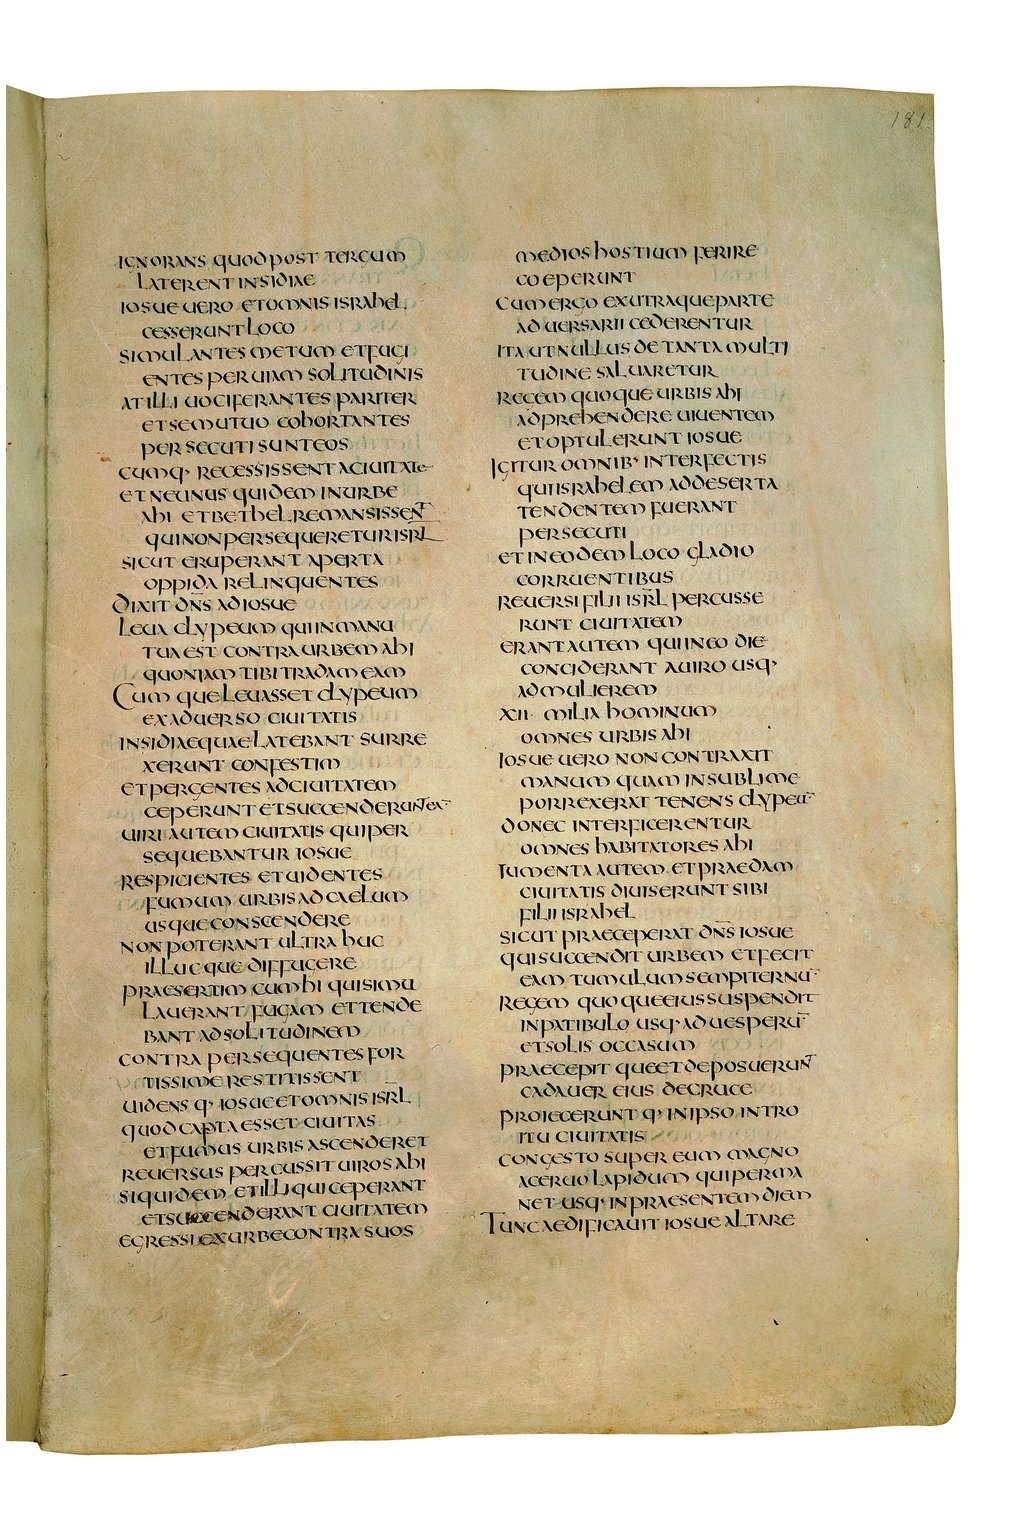 181
IGNORANS QUOD POST TERGUM
LATERENT INSIDIAE
IOSUE UERO ET OMNIS ISRAHEL
CESSERUNT LOCO
SIMULANTES METUM ET FUGI
ENTES PER UIAM SOLITUDINIS
AT ILLI UOCIFERANTES PARITER
ET SE MUTUO COHORTANTES
PERSECUTI SUNT EOS
CUMQ· RECESSISSENT A CIUITATE
ET NE UNUS QUIDEM IN URBE
AHI ET BETHEL REMANSISSENT
QUI NON PERSEQUERETUR ISRL̅
SICUT ERUPERANT APERTA
OPPIDA RELINQUENTES
DIXIT DN̅S AD IOSUE
LEUA CLYPEUM QUI IN MANU
TUA EST CONTRA URBEM AHI
QUONIAM TIBI TRADAM EAM
CUMQUE LEUASSET CLYPEUM
EX ADUERSO CIUITATIS
INSIDIAE QUAE LATEBANT SURRE
XERUNT CONFESTIM
ET PERGENTES AD CIUITATEM
CEPERUNT ET SUCCENDERUNT EA̅
UIRI AUTEM CIUITATIS QUI PER
SEQUEBANTUR IOSUE
RESPICIENTES ET UIDENTES
FUMUM URBIS AD CAELUM
USQUE CONSCENDERE
NON POTERANT ULTRA HUC
ILLUCQUE DIFFUGERE
PRAESERTIM CUM HI QUI SIMU
LAUERANT FUGAM ET TENDE
BANT AD SOLITUDINEM
CONTRA PERSEQUENTES FOR
TISSIME RESTITISSENT
UIDENSQ· IOSUE ET OMNIS ISRL̅
QUOD CAPTA ESSET CIUITAS
ET FUMUS URBIS ASCENDERET
REUERSUS PERCUSSIT UIROS AHI
SIQUIDEM ET ILLI QUI CEPERANT
ET SUCCENDERANT CIUITATEM
EGRESSI EX URBE CONTRA SUOS
MEDIOS HOSTIUM FERIRE
COEPERUNT
CUM ERGO EX UTRAQUE PARTE
ADUERSARII CEDERENTUR
ITA UT NULLUS DE TANTA MULTI
TUDINE SALUARETUR
REGEM QUOQUE URBIS AHI
ADPREHENDERE UIUENTEM
ET OPTULERUNT IOSUE
IGITUR OMNIB· INTERFECTIS
QUI ISRAHELEM AD DESERTA
TENDENTEM FUERANT
PERSECUTI
ET IN EODEM LOCO GLADIO
CORRUENTIBUS
REUERSI FILII ISRL̅ PERCUSSE
RUNT CIUITATEM
ERANT AUTEM QUI IN EO DIE
CONCIDERANT A UIRO USQ·
AD MULIEREM
XII· MILIA HOMINUM
OMNES URBIS AHI
IOSUE UERO NON CONTRAXIT
MANUM QUAM IN SUBLIME
PORREXERAT TENENS CLYPEU̅
DONEC INTERFICERENTUR
OMNES HABITATORES AHI
IUMENTA AUTEM ET PRAEDAM
CIUITATIS DIUISERUNT SIBI
FILII ISRAHEL
SICUT PRAECEPERAT DN̅S IOSUE
QUI SUCCENDIT URBEM ET FECIT
EAM TUMULUM SEMPITERNU̅
REGEM QUOQUE EIUS SUSPENDIT
IN PATIBULO USQ· AD UESPERU̅
ET SOLIS OCCASUM
PRAECEPIT QUE ET DEPOSUERUNT
CADAUER EIUS DE CRUCE
PROIECERUNTQ· IN IPSO INTRO
ITU CIUITATIS
CONGESTO SUPER EUM MAGNO
ACERUO LAPIDUM QUI PERMA
NET USQ· IN PRAESENTEM DIEM
TUNC AEDIFICAUIT IOSUE ALTARE